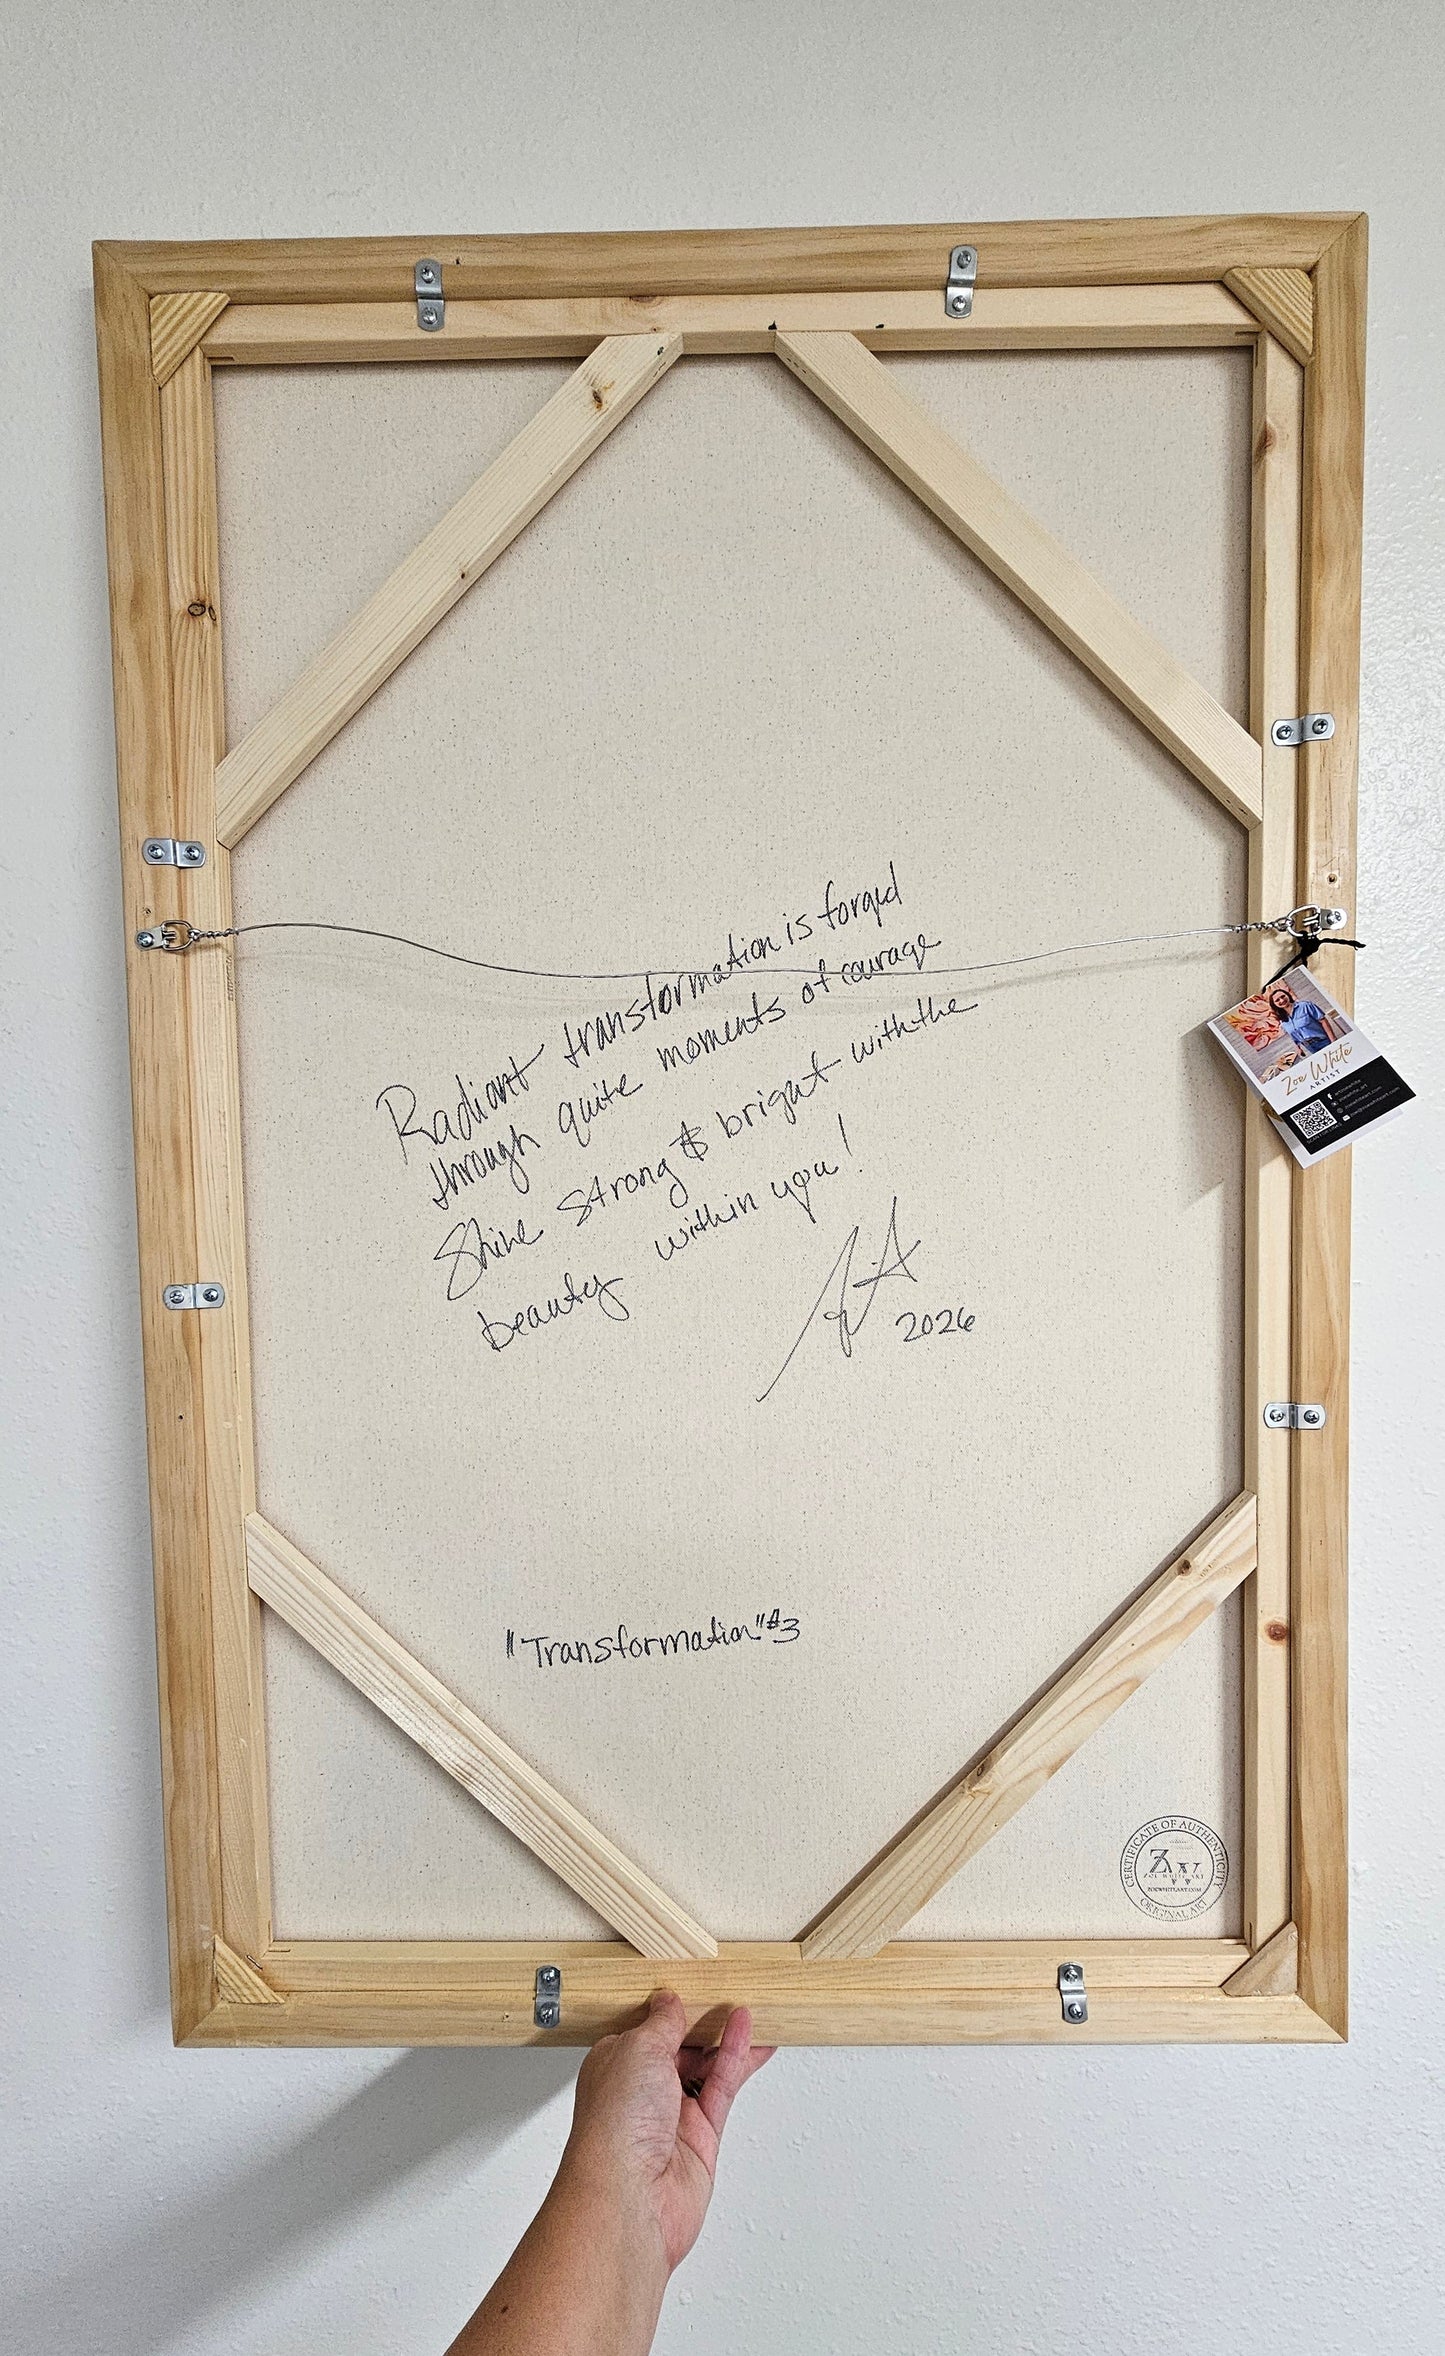 Radiant transformation is forged
through quite moments of courage
Shine strong & bright with the
beauty within you!
2026
"Transformation" #3
Zoe White
ARTIST
CERTIFICATE OF AUTHENTICITY
ZW
ZOE WHITE ART
ZOEWHITEART.COM
ORIGINAL ART